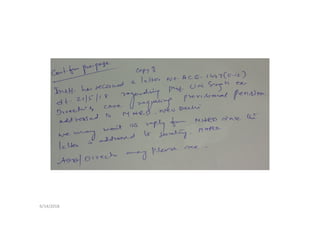 Cont. from pre-page
Copy of
Instt. has received a letter No. ACE-1447(C-12)
dt 21/5/18 regarding Prof. U.N Singh ex
Director's case regarding provisional pension
addressed to MHRD, New Delhi
We may wait as reply from MHRD since the
letter is addressed to Secretary, MHRD
ADSS/Director may please see.
6/14/2018